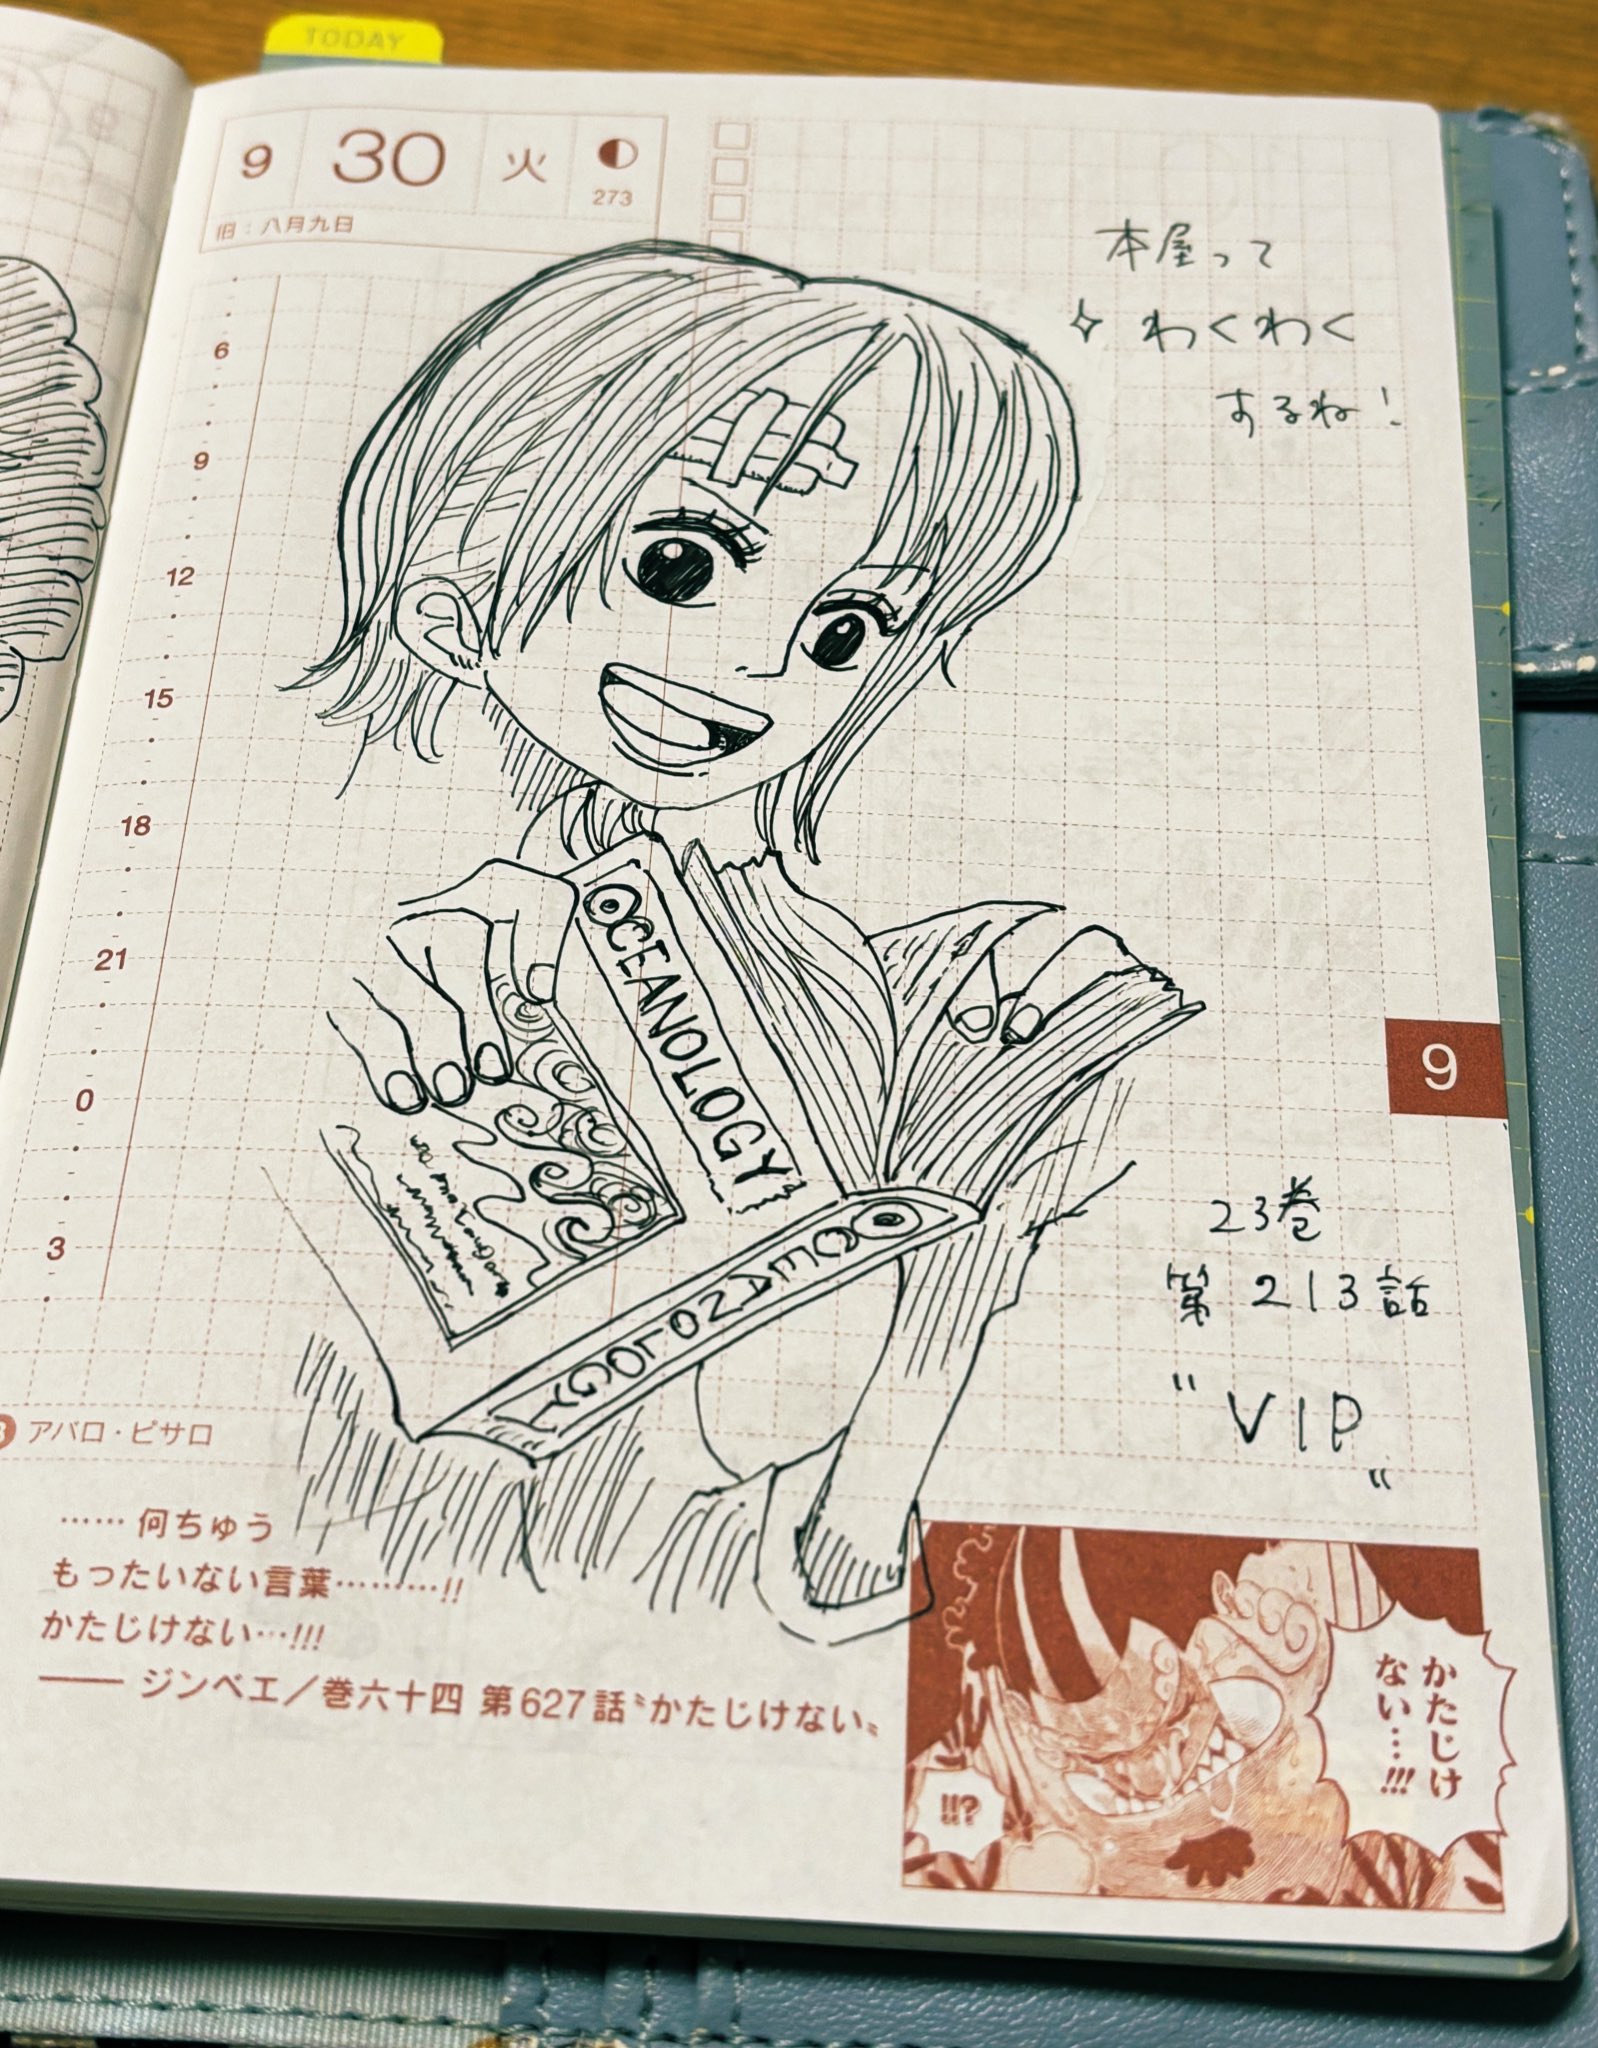 TODAY
9 30 火
273
旧：八月九日
本屋って
わくわく
するね！
6
9
12
15
18
21
0
3
OCEANOLOGY
OCEANOLOGY
9
23巻
第213話
"VIP"
アバロ・ピサロ
……何ちゅう
もったいない言葉………!!
かたじけない…!!!
―― ジンベエ／巻六十四 第627話〝かたじけない〟
かたじけ
ない…!!!
!!?